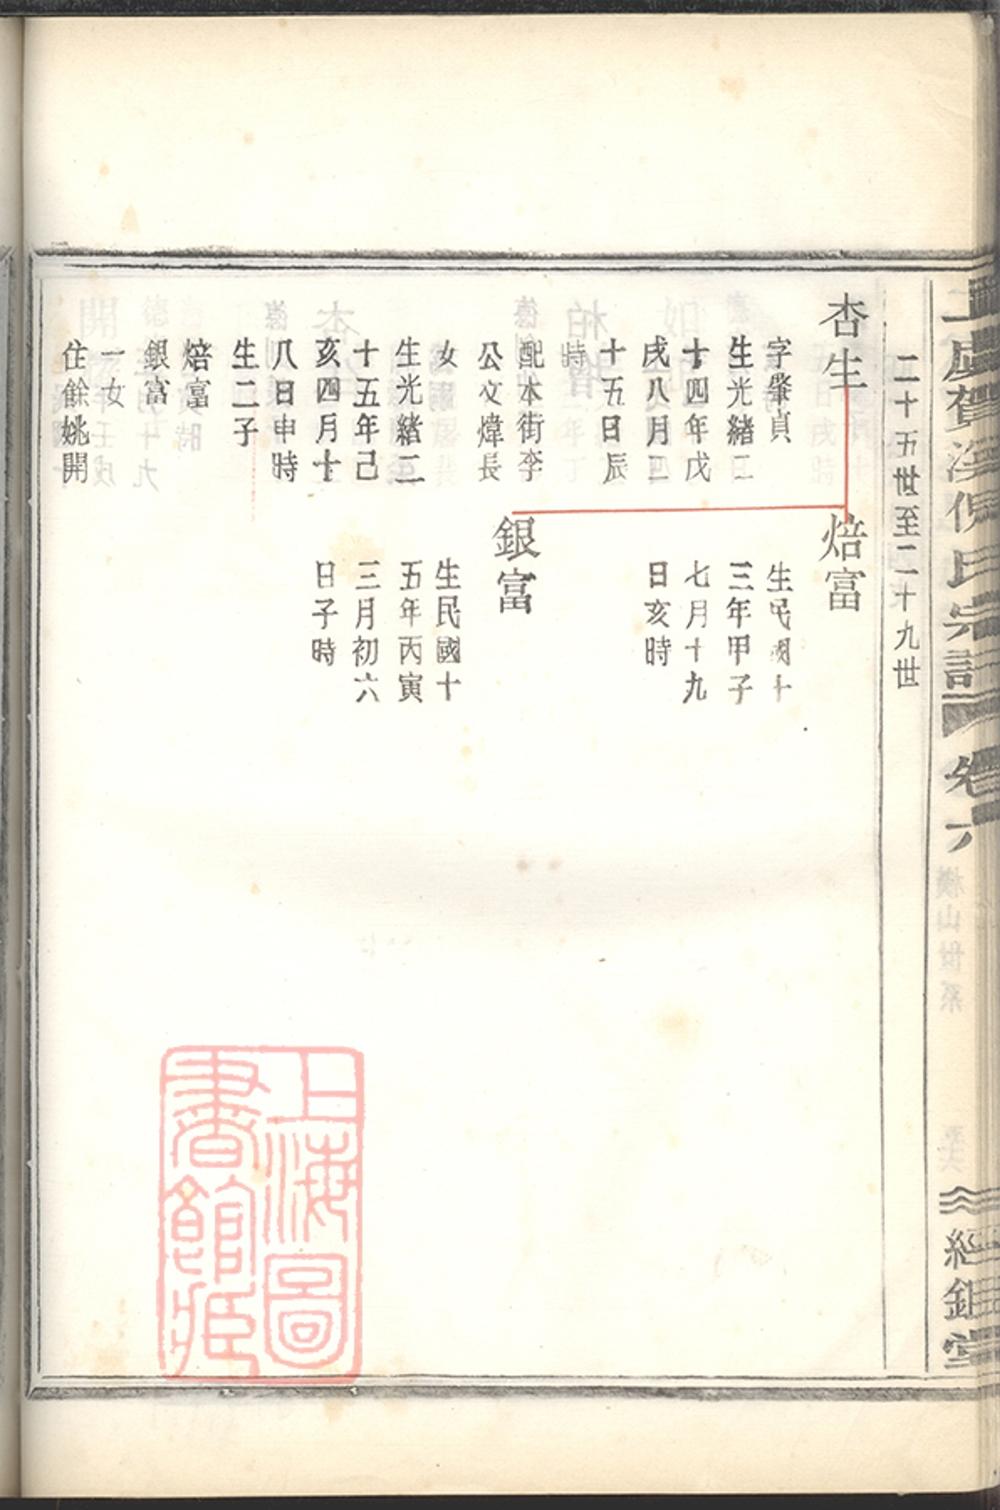 二十五世至二十九世
杏生
字肇貞
生光緒二
十四年戊
戌八月二
十五日辰
時
配本街李
公文煒長
女
生光緒二
十五年己
亥四月十
八日申時
生二子
焙富
銀富
一女
住餘姚開
焙富
生民國十
三年甲子
七月十九
日亥時
銀富
生民國十
五年丙寅
三月初六
日子時
賀溪倪氏宗譜
卷六
經鉏堂
上海圖
書館藏